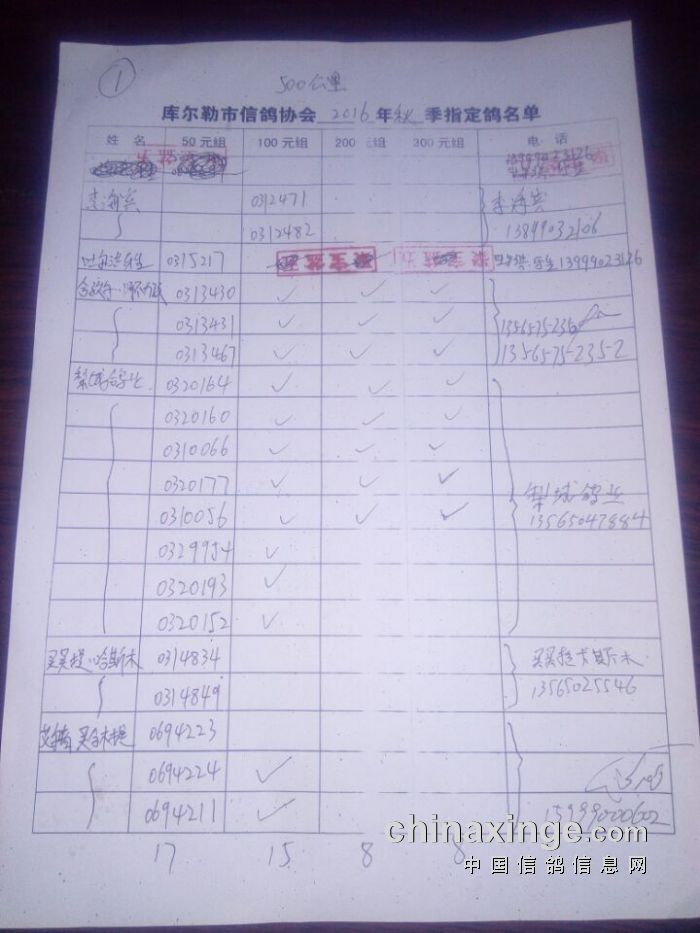 1
500公里
库尔勒市信鸽协会 2016 年 秋 季指定鸽名单
姓 名 50 元组 100 元组 200 元组 300 元组 电 话
13999023126
李海宾 0312471 李海宾
0312482 13899032106
吐尔洪乐生 0315217 吐尔洪 乐生 13999023126
0313430 ✓ ✓ ✓
0313431 ✓ ✓ ✓
0313467 ✓ ✓ ✓ 13565752352
梨城鸽业 0320164 ✓ ✓ ✓
0320160 ✓ ✓ ✓
0310066 ✓ ✓ ✓
0320177 ✓ ✓ ✓ 梨城鸽业
0310056 ✓ ✓ ✓ 13565047884
0329954 ✓
0320193 ✓
0320152 ✓
买买提·哈斯木 0314834 买买提卡斯木
0314849 13565025546
0694223
0694224 ✓
0694211 ✓ 15999000602
17 15 8 8
chinaxinge.com
中国信鸽信息网